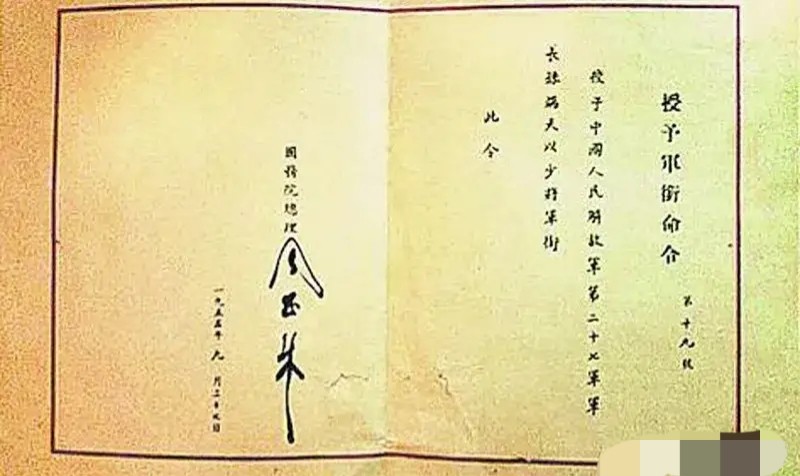 授予軍銜命令
第十九號
授予中國人民解放軍第二十七軍軍
長孫端夫以少將軍銜
此令
國務院總理
周恩来
一九五五年九月二十日